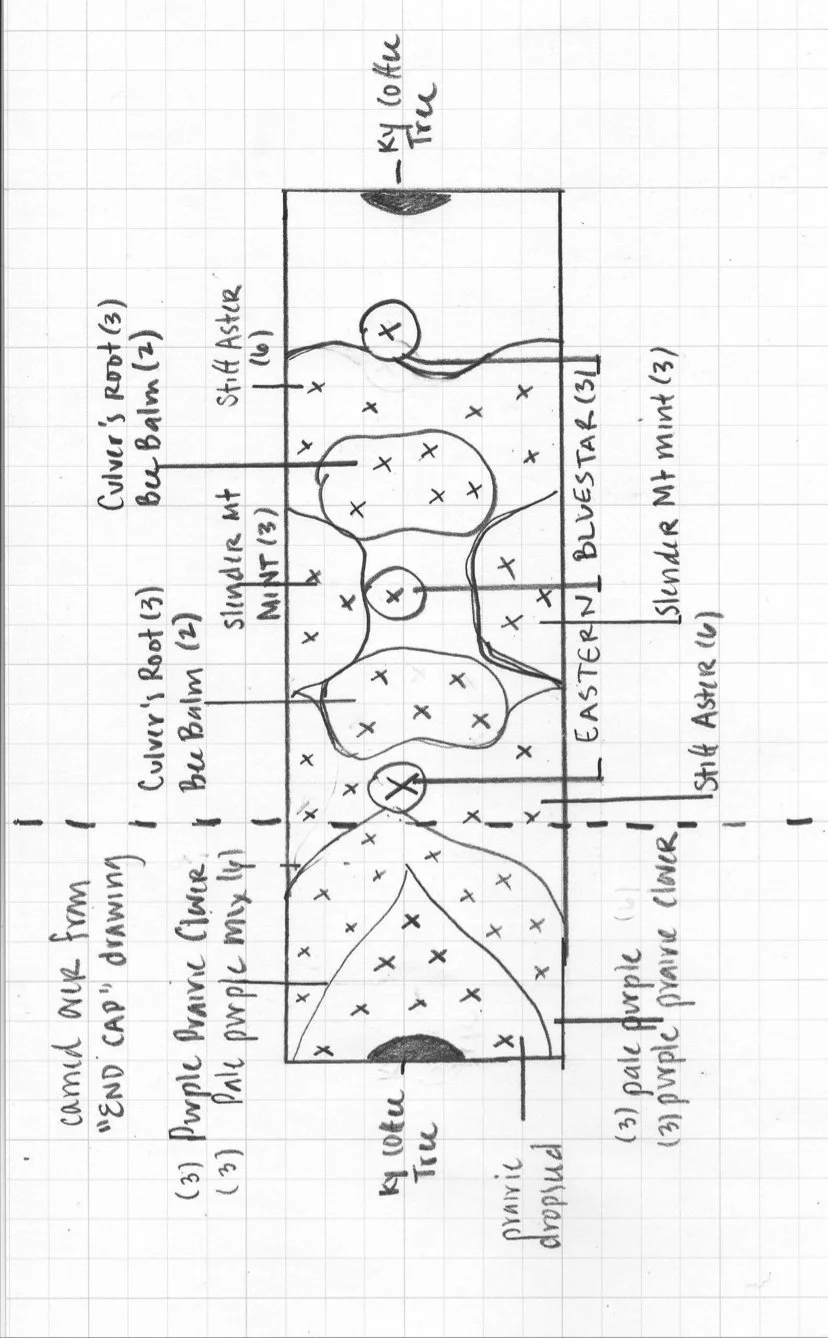 Ky Coffee
Tree
Culver's Root (3)
Bee Balm (2)
Stiff Aster
(6)
Slender Mt
MINT (3)
Culver's Root (3)
Bee Balm (2)
EASTERN BLUESTAR (3)
Slender Mt mint (3)
Stiff Aster (6)
carried over from
"END CAP" drawing
(3) Purple Prairie Clover
(3) Pale purple mix (6)
Ky Coffee
Tree
prairie
dropseed
(3) pale purple (6)
(3) purple prairie clover